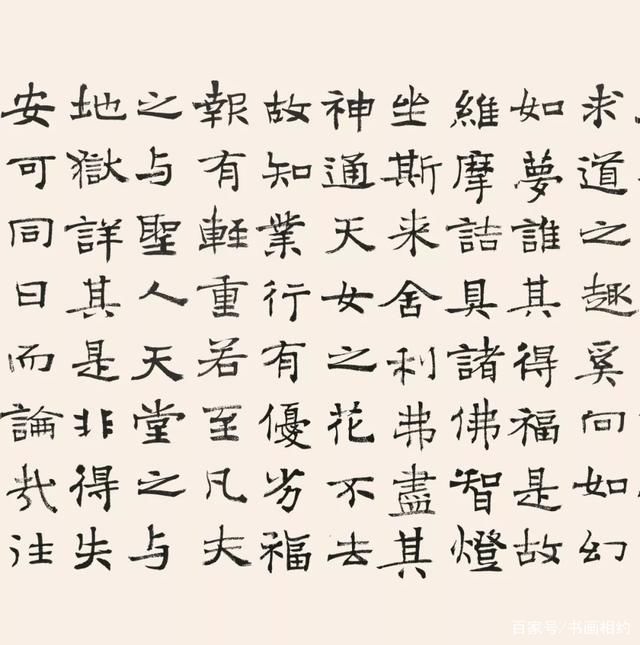 求道之趣奚向如幻
如夢誰其得福是故
維摩詰具諸佛智燈
坐斯來舍利弗盡其
神通天女之花不去
故知業行有優劣福
報有輕重若至凡夫
之与聖人天堂之与
地獄詳其是非得失
安可同日而論哉注
百家号/书画相约